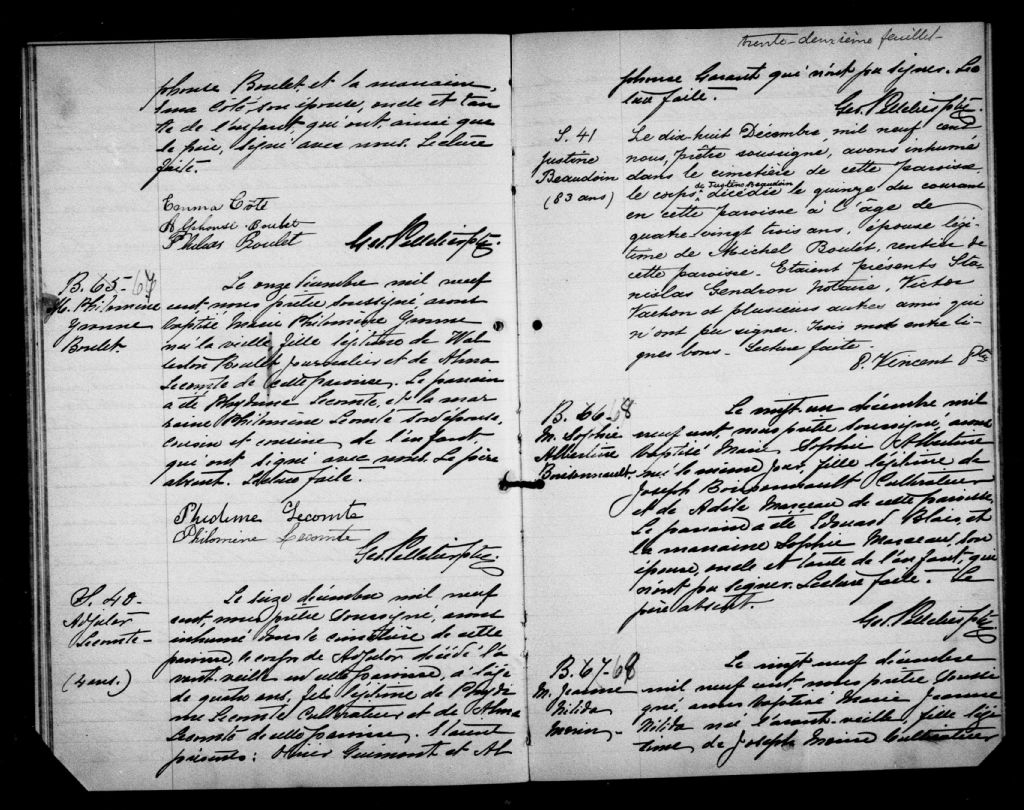 phonse Boulet, et la marraine,
Emma Coté son épouse, oncle et tan
te de l'enfant, qui ont, ainsi que
le père, signé avec nous. Lecture
faite.
Emma Côté
Alphonse Boulet
Boulet Geo. Pelletier, ptre.
B. 65 - 67
M. Philomène
Yvonne
Boulet.
Le onze décembre mil neuf
cent, nous prêtre soussigné avons
baptisé Marie Philomène Yvonne
née la veille, fille légitime de
Boulet journalier et de Alma
Lecomte de cette paroisse. Le parrain
a été Phydime Lecomte, et la mar
raine Philomène Lecomte son épouse,
cousin et cousine de l'enfant
qui ont signé avec nous. Le père
absent. Lecture faite.
Phidime Lecomte
Philomène Lecomte
Geo. Pelletier, ptre.
S. 40 -
Adjutor
Lecomte -
(4 ans.)
Le seize décembre mil neuf
cent, nous, prêtre soussigné, avons
inhumé dans le cimetière de cette
paroisse, le corps de Adjutor décédé l'a
vant-veille en cette paroisse, à l'âge
de quatre ans, fils légitime de Phydi
me Lecomte Cultivateur et de Alma
Lecomte de cette paroisse. Etaient
présents: Guimont et Al
trente-deuxième feuillet -
phonse Garant qui n'ont pu signer. Lec
ture faite.
Geo. Pelletier, ptre.
S. 41
Justine
Beaudoin
(83 ans)
Le dix huit Décembre mil neuf cent
nous, prêtre soussigné, avons inhumé
dans le cimetière de cette paroisse
le corps de Justine Beaudoin décédée le quinze du courant
en cette paroisse à l'âge de
quatre vingt trois ans, épouse légi
time de Michel Boulet, rentier de
cette paroisse. Etaient présents Sta
nislas Gendron notaire, Victor
Vachon et plusieurs autres amis qui
n'ont pu signer. Trois mots entre li
gnes bons - Lecture faite.
P. Vincent Ptre
B. 66 - 68
M. Sophie
Albertine
Bonsonnault.
Le vingt-un décembre mil
neuf cent, nous prêtre soussigné, avons
baptisé Marie Sophie Albertine
née le même jour, fille légitime de
Joseph Bonsonnault Cultivateur
et de Adèle Marceau de cette paroisse.
Le parrain a été Edouard Blais, et
la marraine Sophie Marceau, son
épouse, oncle et tante de l'enfant, qui
n'ont pu signer. Lecture faite. Le
père absent.
Geo. Pelletier, ptre
B. 67 - 69
M. Jeanne
Nilida
Morin -
Le vingt neuf décembre
mil neuf cent, nous prêtre soussi
gné, avons baptisé Marie Jeanne
Nilida née l'avant-veille, fille légi
time de Joseph Morin Cultivateur